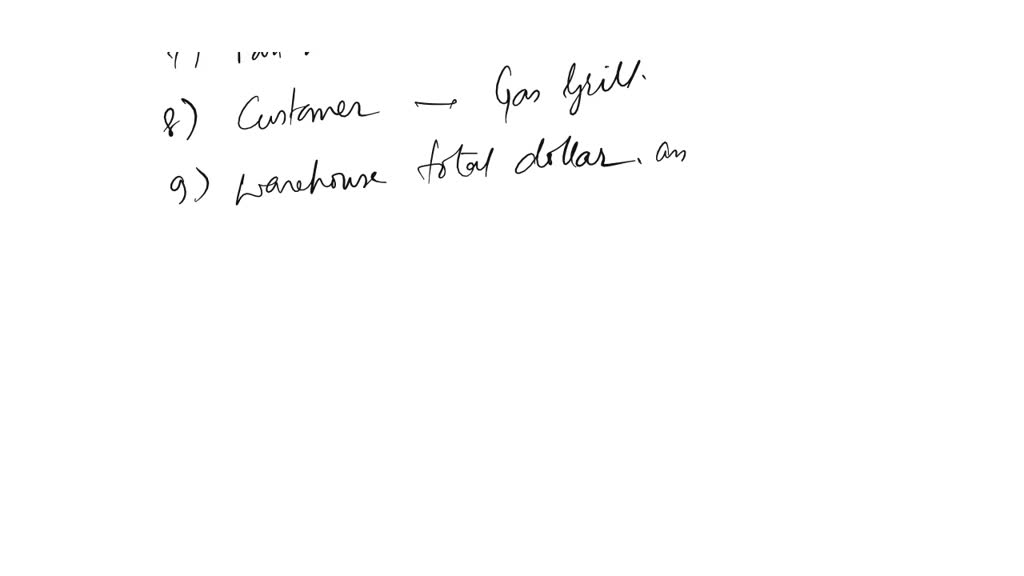 8) Customer — Gas Grill.
9) warehouse total dollar. an